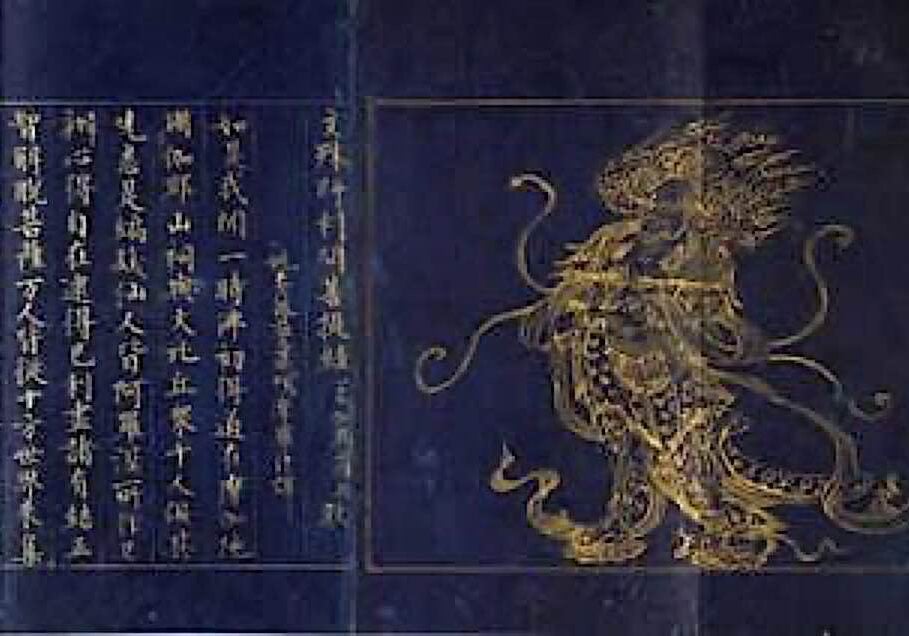 文殊師利問菩提經
如是我聞一時佛初得道在摩伽陀
國伽耶山祠與大比丘眾千人俱其
先悉是編髮仙人皆阿羅漢所作已
辦心得自在逮得己利盡諸有結正
智解脫菩薩万人皆從十方世界來集